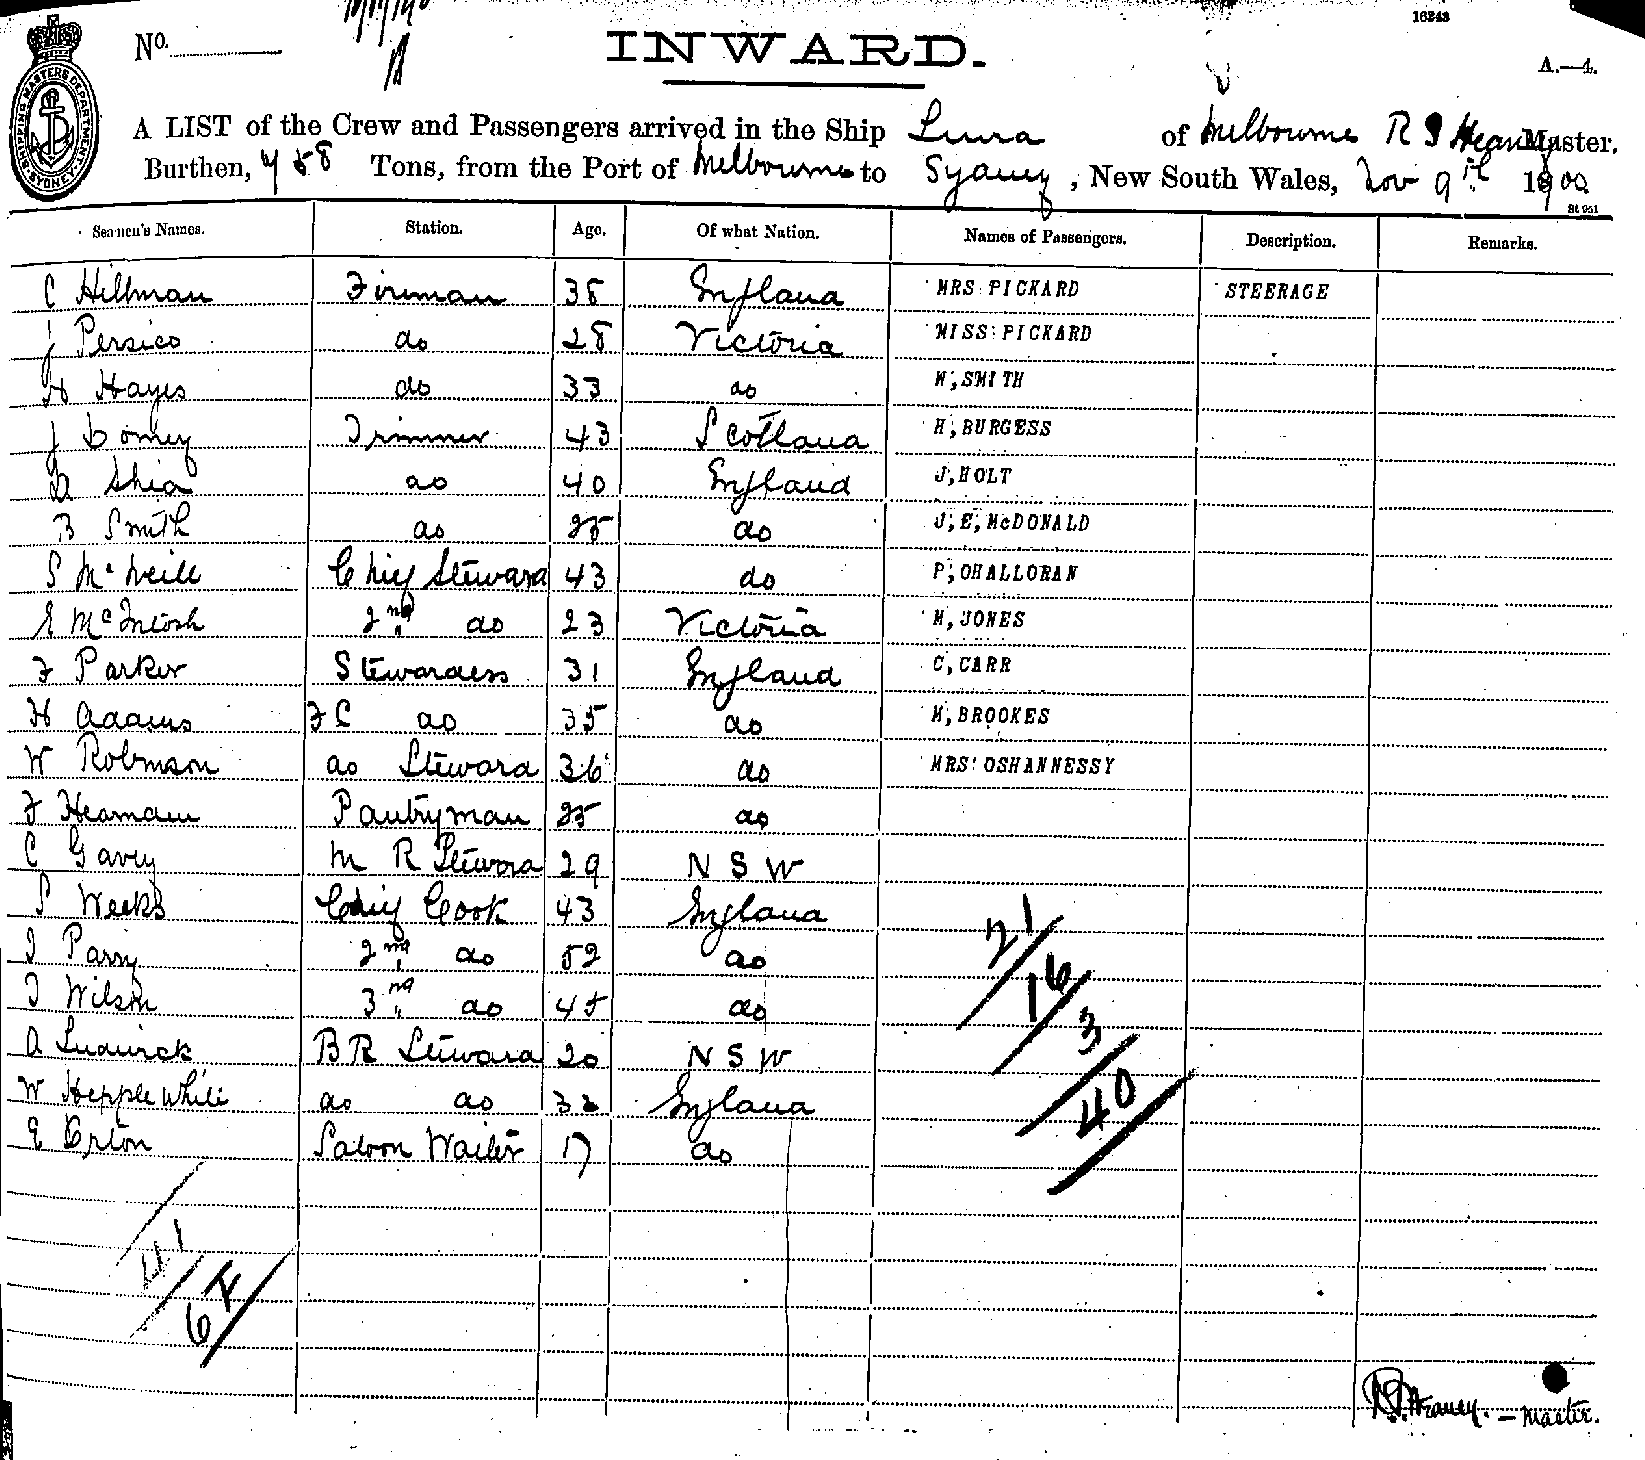 16243
No.
INWARD.
A.—4.
SHIPPING MASTERS DEPARTMENT SYDNEY
A LIST of the Crew and Passengers arrived in the Ship of Melbourne Master.
Burthen, Tons, from the Port of Melbourne to Sydney, New South Wales, Nov 9th 1900
St 951
Seamen's Names. Station. Age. Of what Nation. Names of Passengers. Description. Remarks.
C Hillman Fireman 38 England MRS PICKARD STEERAGE
J Persico do 28 Victoria MISS PICKARD
H Hayes do 33 do W,SMITH
J Trimmer 43 Scotland H,BURGESS
Shea do 40 England J,HOLT
B Smith do 25 do J,E,McDONALD
S McNeill Chief Steward 43 do P,OHALLORAN
E McIntosh 2nd do 23 Victoria M,JONES
F Parker Stewardess 31 England C,CARR
H Adams F C do 35 do M,BROOKES
W Robinson do Steward 36 do MRS OSHANNESSY
F Pantryman 25 do
C Gavey M R Steward 29 N S W
S Weeks Chief Cook 43 England
Parry 2nd do 52 do
Wilson 3rd do 45 do
A Ludwick B R Steward 20 N S W
W Hepplewhite do do England
E Saloon Waiter 17 do
21
16
3
40
41
Heaney. — Master.